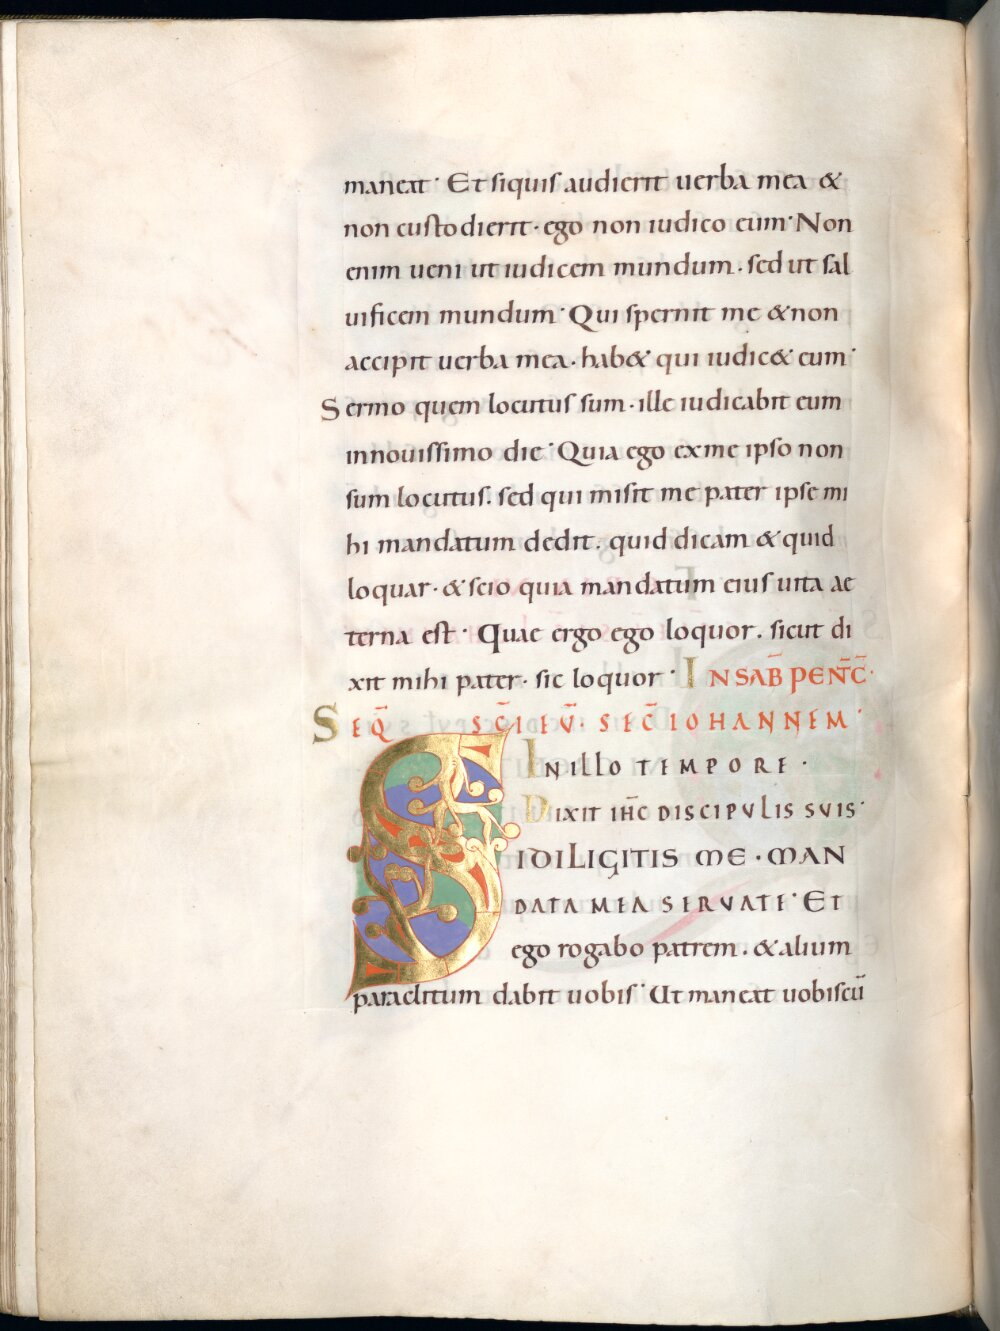 maneat · Et siquis audierit uerba mea &
non custodierit · ego non iudico eum · Non
enim ueni ut iudicem mundum · sed ut sal
uificem mundum · Qui spernit me & non
accipit uerba mea · hab& qui iudic& eum ·
Sermo quem locutus sum · ille iudicabit eum
innouissimo die · Quia ego exme ipso non
sum locutus. sed qui misit me pater ipse mi
hi mandatum dedit. quid dicam & quid
loquar · & scio quia mandatum eius uita ae
terna est · Quae ergo ego loquor. sicut di
xit mihi pater · sic loquor · IN SAB̅ PENT̅C̅ ·
SEQ̅ SC̅I EV̅ · SEC̅ IOHANNEM ·
INILLO TEMPORE ·
DIXIT IH̅C DISCIPVLIS SVIS ·
SIDILIGITIS ME · MAN
DATA MEA SERVATE · Et
ego rogabo patrem. & alium
paraclitum dabit uobis · Ut maneat uobiscū